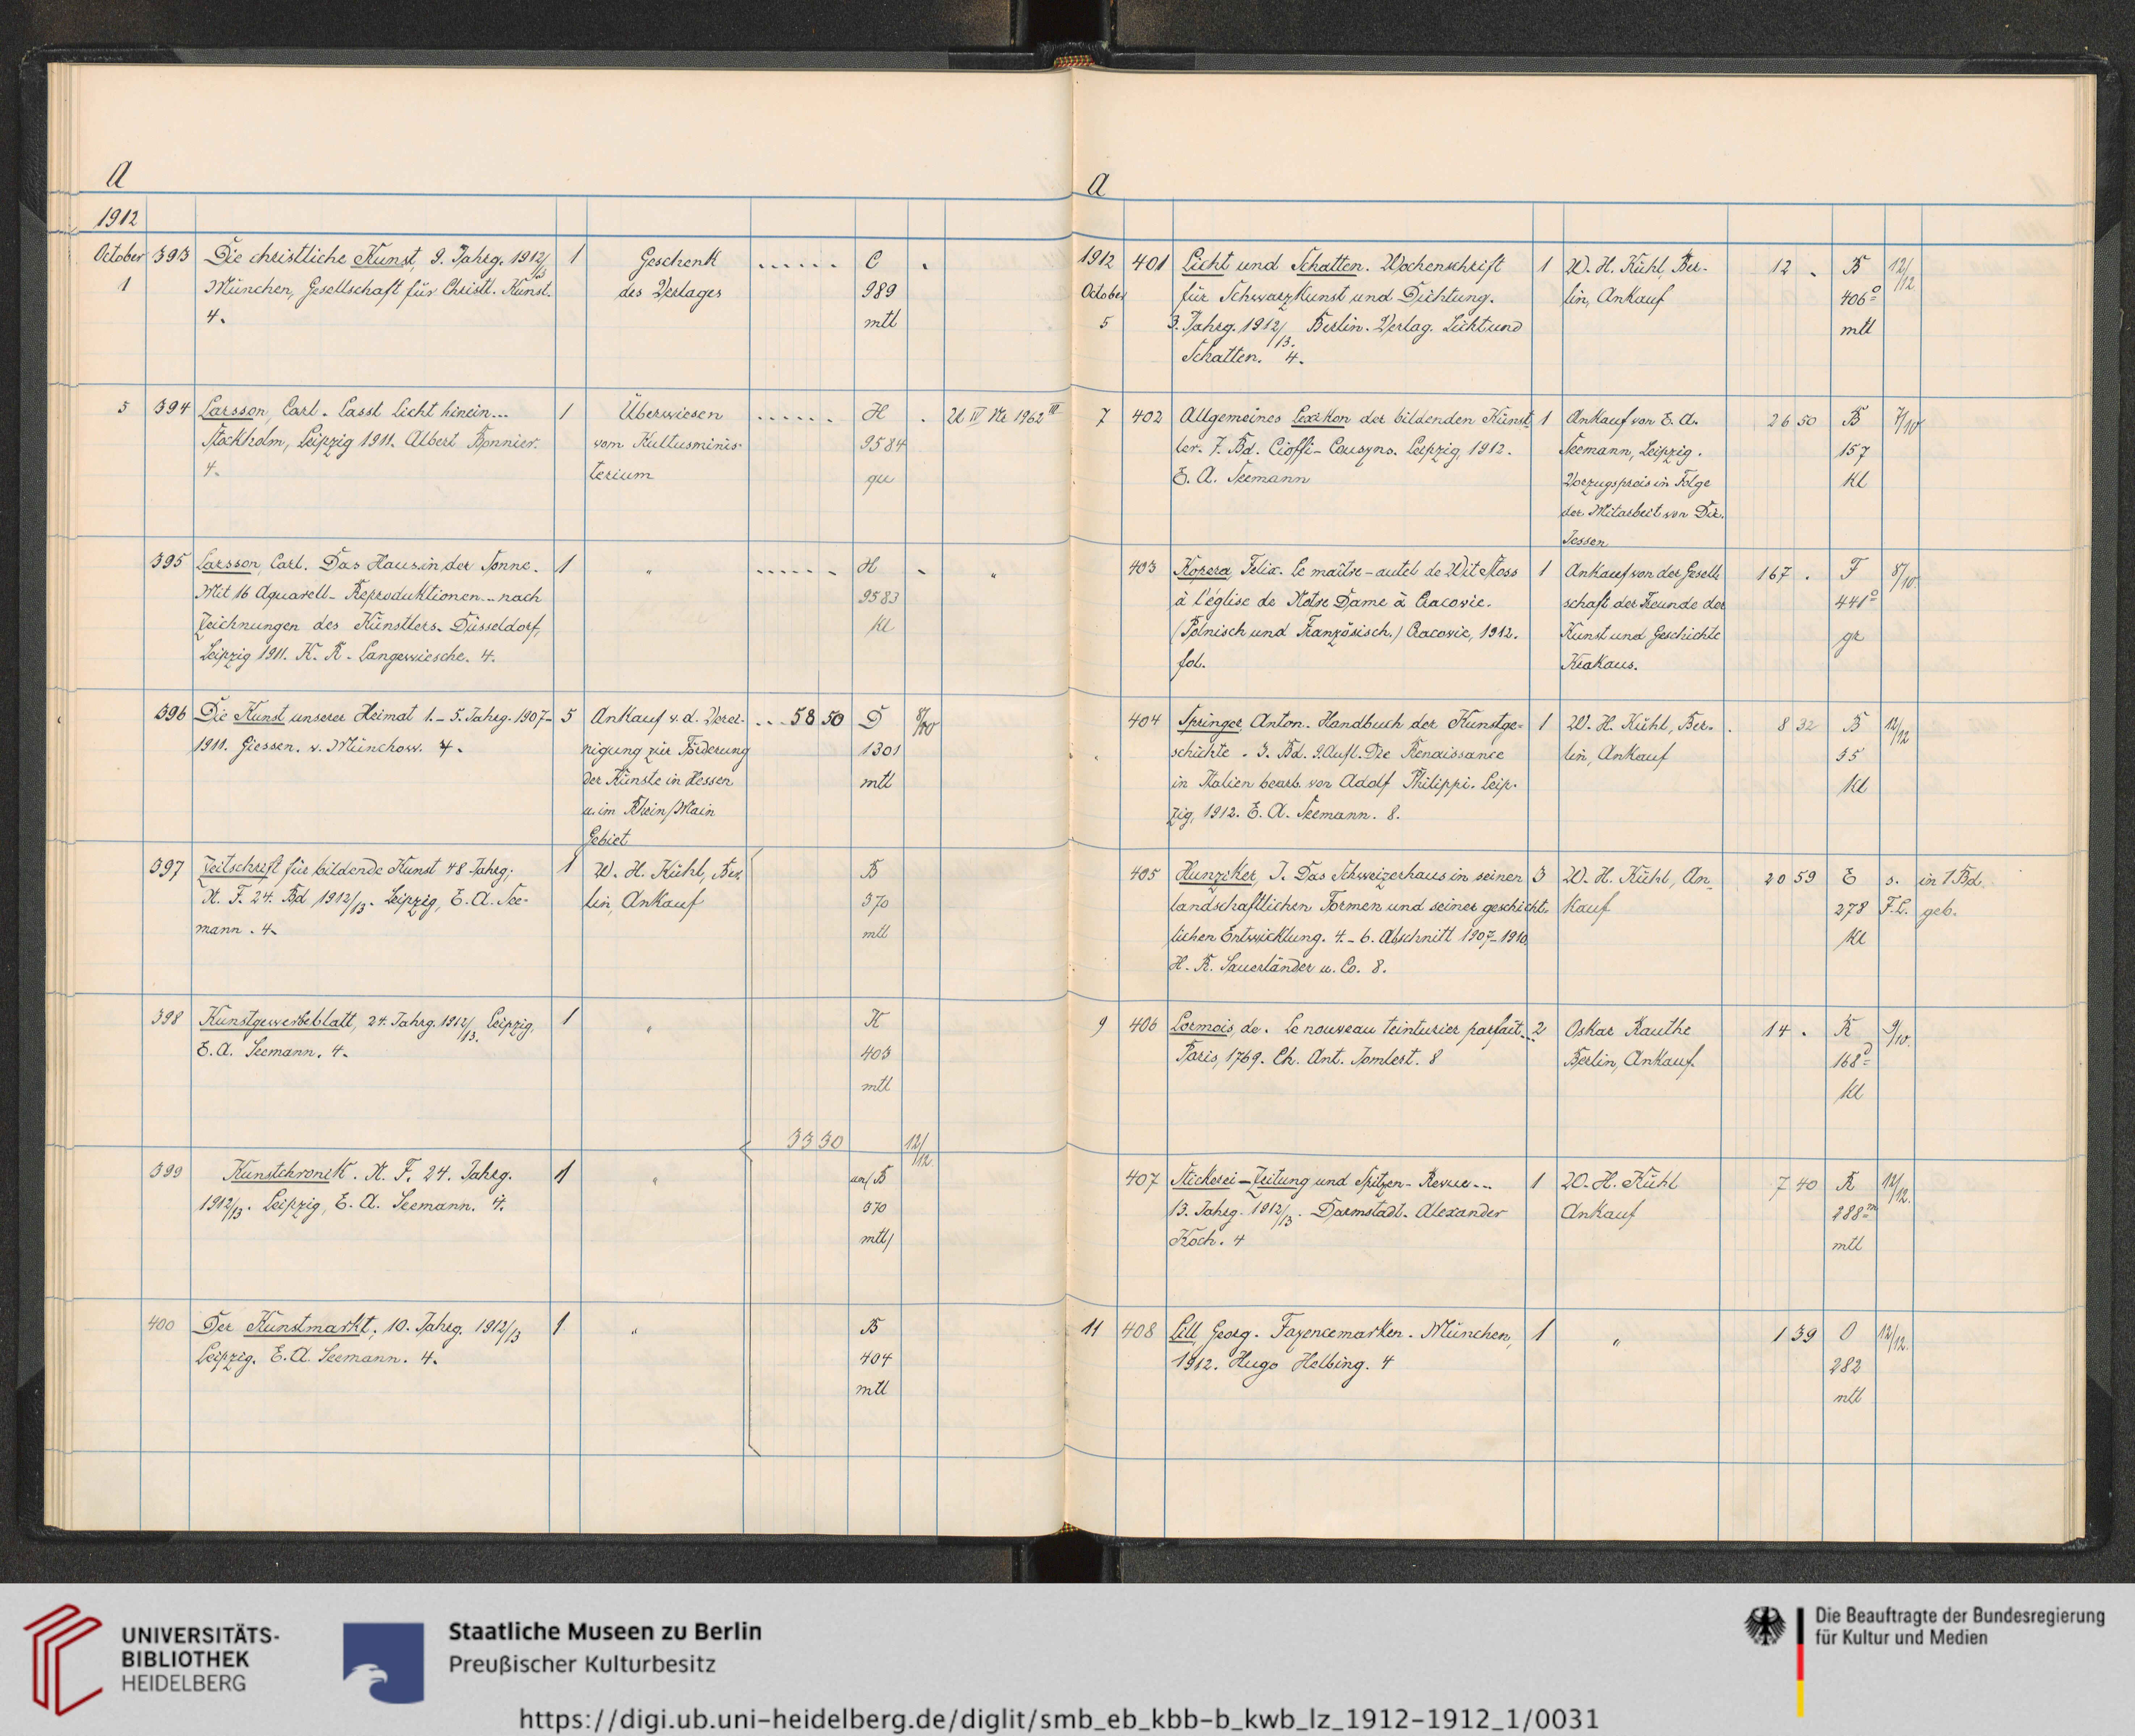 A
1912
October 393 Die christliche Kunst, 9. Jahrg. 1912/13 1 Geschenk ...... C .
1 München, Gesellschaft für Christl. Kunst. des Verlages 989
4. mtl
5 394 Larsson, Carl. Lasst Licht hinein... 1 Überwiesen ...... H . U IV Nr 1962 III
Stockholm, Leipzig 1911. Albert Bonnier. vom Kultusminis- 9584
4. terium qu
395 Larsson, Carl. Das Haus in der Sonne. 1 " ...... H . "
Mit 16 Aquarell-Reproduktionen... nach 9583
Zeichnungen des Künstlers. Düsseldorf, kl
Leipzig 1911. K. R. Langewiesche. 4.
396 Die Kunst unserer Heimat 1.-5. Jahrg. 1907- 5 Ankauf v. d. Verei- ... 58 50 D 8/10
1911. Giessen. v. Münchow. 4. nigung zur Förderung 1301
der Künste in Hessen mtl
u. im Rhein/Main
Gebiet
397 Zeitschrift für bildende Kunst 48 Jahrg; 1 W. H. Kühl, Ber- B
N. F. 24. Bd 1912/13. Leipzig, E. A. See- lin, Ankauf 370
mann. 4. mtl
398 Kunstgewerbeblatt, 24. Jahrg. 1912/13. Leipzig, 1 " K
E. A. Seemann. 4. 403
mtl
33 30 12/12.
399 Kunstchronik. N. F. 24. Jahrg. 1 " an/B
1912/13. Leipzig, E. A. Seemann. 4. 370
mtl/
400 Der Kunstmarkt, 10. Jahrg. 1912/13 1 " B
Leipzig. E. A. Seemann. 4. 404
mtl
A
1912 401 Licht und Schatten. Wochenschrift 1 W. H. Kühl, Ber- 12 . B 12/12
October für Schwarzkunst und Dichtung. lin, Ankauf 406 o
5 3. Jahrg. 1912/13. Berlin. Verlag. Licht und mtl
Schatten. 4.
7 402 Allgemeines Lexikon der bildenden Künst- 1 Ankauf von E. A. 26 50 B 7/10
ler. 7. Bd. Cioffi-Cousyns. Leipzig, 1912. Seemann, Leipzig. 157
E. A. Seemann Vorzugspreis in Folge kl
der Mitarbeit von Dir.
Jessen
403 Kopera, Felix. Le maître-autel de Wit Stoss 1 Ankauf von der Gesell- 167 . F 8/10
à l'église de Notre Dame à Cracovie. schaft der Freunde der 441 o
(Polnisch und Französisch.) Cracovie, 1912. Kunst und Geschichte gr
fol. Krakaus.
404 Springer, Anton. Handbuch der Kunstge- 1 W. H. Kühl, Ber- 8 32 B 12/12
schichte. 3. Bd. 9. Aufl. Die Renaissance lin, Ankauf 35
in Italien bearb. von Adolf Philippi. Leip- kl
zig, 1912. E. A. Seemann. 8.
405 Hunziker, J. Das Schweizerhaus in seinen 3 W. H. Kühl, An- 20 59 E s. in 1 Bd.
landschaftlichen Formen und seiner geschicht- kauf 278 F.L. geb.
lichen Entwicklung. 4.-6. Abschnitt 1907-1910 kl
H. R. Sauerländer u. Co. 8.
9 406 Lormois, de. Le nouveau teinturier parfait... 2 Oskar Rauthe 14 . K 9/10.
Paris, 1769. Ch. Ant. Jombert. 8 Berlin, Ankauf. 168 d
kl
407 Stickerei-Zeitung und Spitzen-Revue... 1 W. H. Kühl 7 40 K 12/12.
13. Jahrg. 1912/13. Darmstadt. Alexander Ankauf 288 m
Koch. 4 mtl
11 408 Lill, Georg. Fayencemarken. München, 1 " 1 39 O 12/12.
1912. Hugo Helbing. 4 282
mtl
UNIVERSITÄTS-
BIBLIOTHEK
HEIDELBERG
Staatliche Museen zu Berlin
Preußischer Kulturbesitz
Die Beauftragte der Bundesregierung
für Kultur und Medien
https://digi.ub.uni-heidelberg.de/diglit/smb_eb_kbb-b_kwb_lz_1912-1912_1/0031